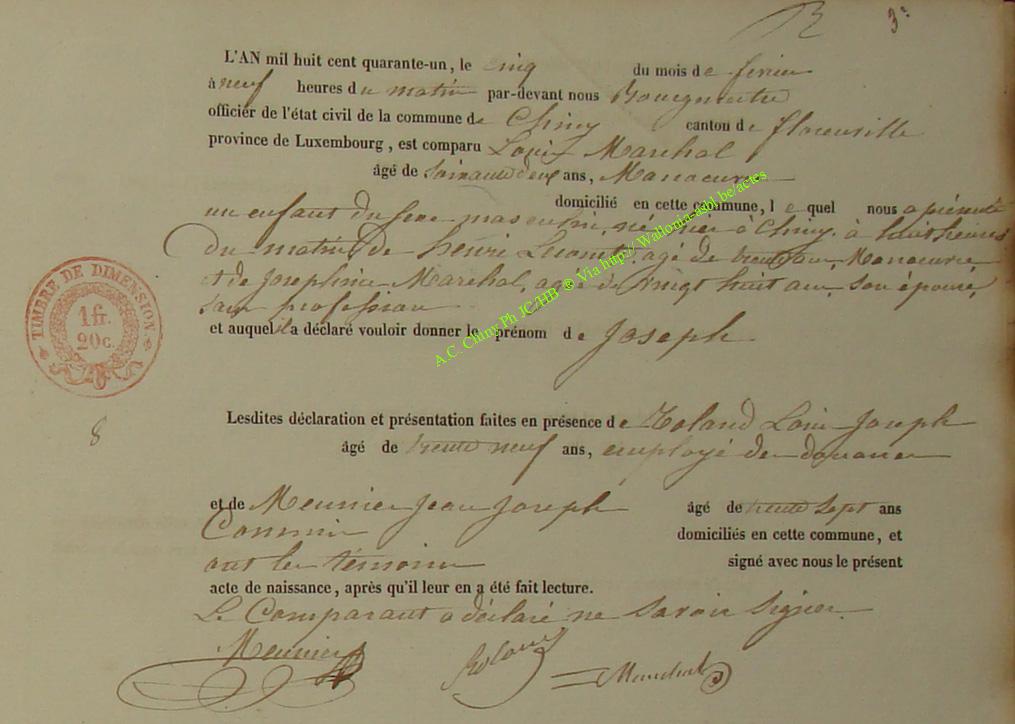 3e
L'AN mil huit cent quarante-un, le cinq du mois de fevrier
à neuf heures du matin par-devant nous Bourgmestre
officier de l'état civil de la commune de Chiny canton de florenville
province de Luxembourg, est comparu Louis Marechal
âgé de Soixante deux ans, Manoeuvre
domicilié en cette commune, le quel nous a présenté
un enfant du sexe masculin, né hier à Chiny à huit heures
du matin, de henri Lecomte, agé de trente ans, Manoeuvre
et de Josephine Marechal, agée de vingt huit ans, son épouse,
sans profession
et auquel il a déclaré vouloir donner le prénom de Joseph
TIMBRE DE DIMENSION
1 fr.
20 c.
8
Lesdites déclaration et présentation faites en présence de Roland Louis Joseph
âgé de trente neuf ans, employé des douanes
et de Meunier Jean Joseph âgé de trente Sept ans
Commis domiciliés en cette commune, et
ont les témoins signé avec nous le présent
acte de naissance, après qu'il leur en a été fait lecture.
Le Comparant a déclaré ne savoir Signer
Meunier Roland Marechal
A.C. Chiny Ph JC/HB ® Via http:// Wallonia-asbl.be/actes